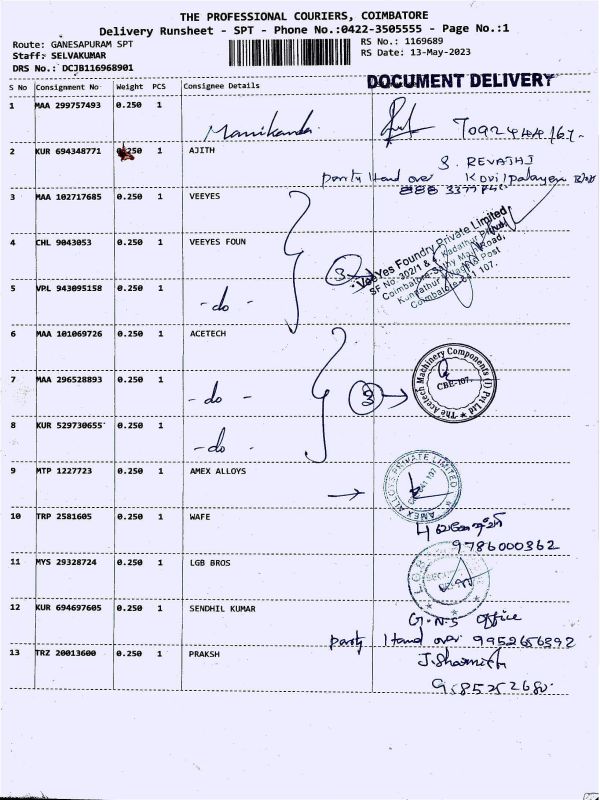 THE PROFESSIONAL COURIERS, COIMBATORE
Delivery Runsheet - SPT - Phone No.:0422-3505555 - Page No.:1
Route: GANESAPURAM SPT
RS No.: 1169689
Staff: SELVAKUMAR
RS Date: 13-May-2023
DRS No.: DCJB116968901
DOCUMENT DELIVERY
S No Consignment No Weight PCS Consignee Details
1 MAA 299757493 0.250 1
Manikanda
2 KUR 694348771 0.250 1 AJITH
S. REVATHI
party Hand over Kovilpalayam
3 MAA 102717685 0.250 1 VEEYES
4 CHL 9043053 0.250 1 VEEYES FOUN
3
VeeYes Foundry Private Limited
SF No-302/1 &
Coimbatore-Sathy Main Road,
Post
Coimbatore-641 107.
5 VPL 943095158 0.250 1
- do -
6 MAA 101069726 0.250 1 ACETECH
7 MAA 296528893 0.250 1
- do -
3
The Acetech Machinery Components (I) Pvt Ltd
CBE-107.
8 KUR 529730655 0.250 1
- do -
9 MTP 1227723 0.250 1 AMEX ALLOYS
AMEX ALLOYS PRIVATE LIMITED
10 TRP 2581605 0.250 1 WAFE
9786000362
11 MYS 29328724 0.250 1 LGB BROS
12 KUR 694697605 0.250 1 SENDHIL KUMAR
G.N.S office
party Hand over 9952656392
13 TRZ 20013600 0.250 1 PRAKSH
J. Sharmith